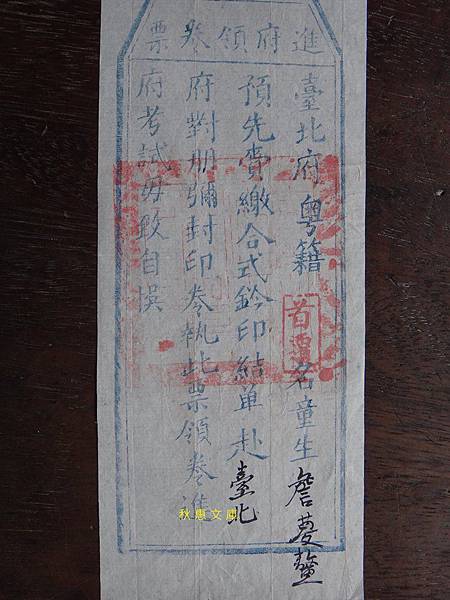 進府領卷票
臺北府粵籍首票名童生詹鰲
預先賫繳合式鈐印結单赴臺北
府對册彌封印卷執此票領卷進
府考試毋致自悞
秋惠文庫